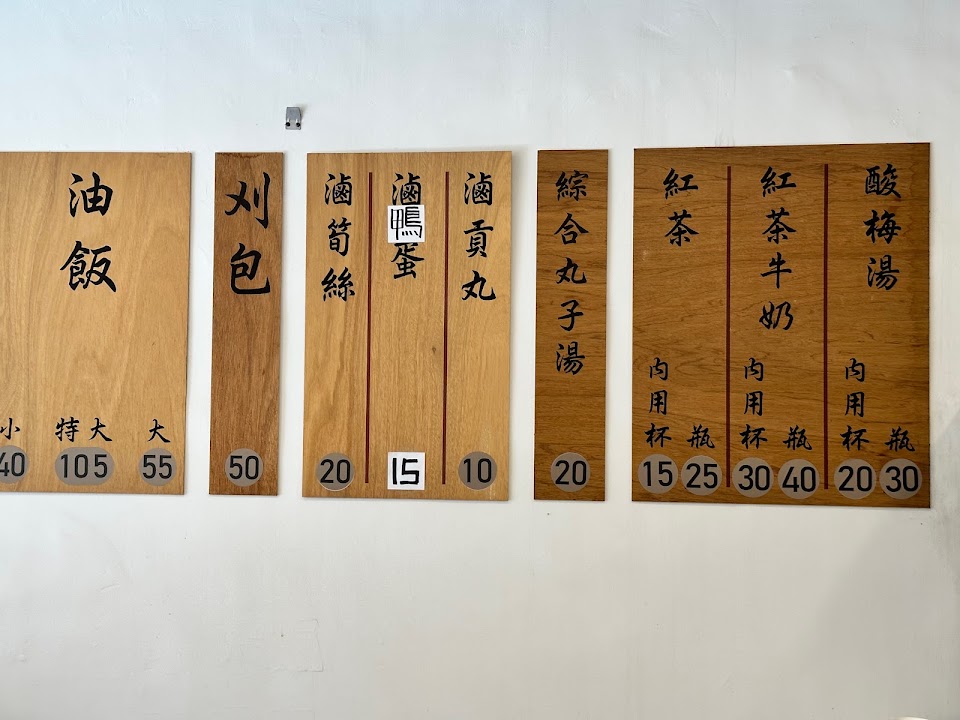 油飯
小
40
特大
105
大
55
刈包
50
滷筍絲
20
滷鴨蛋
15
滷貢丸
10
綜合丸子湯
20
紅茶
內用杯
15
瓶
25
紅茶牛奶
內用杯
30
瓶
40
酸梅湯
內用杯
20
瓶
30